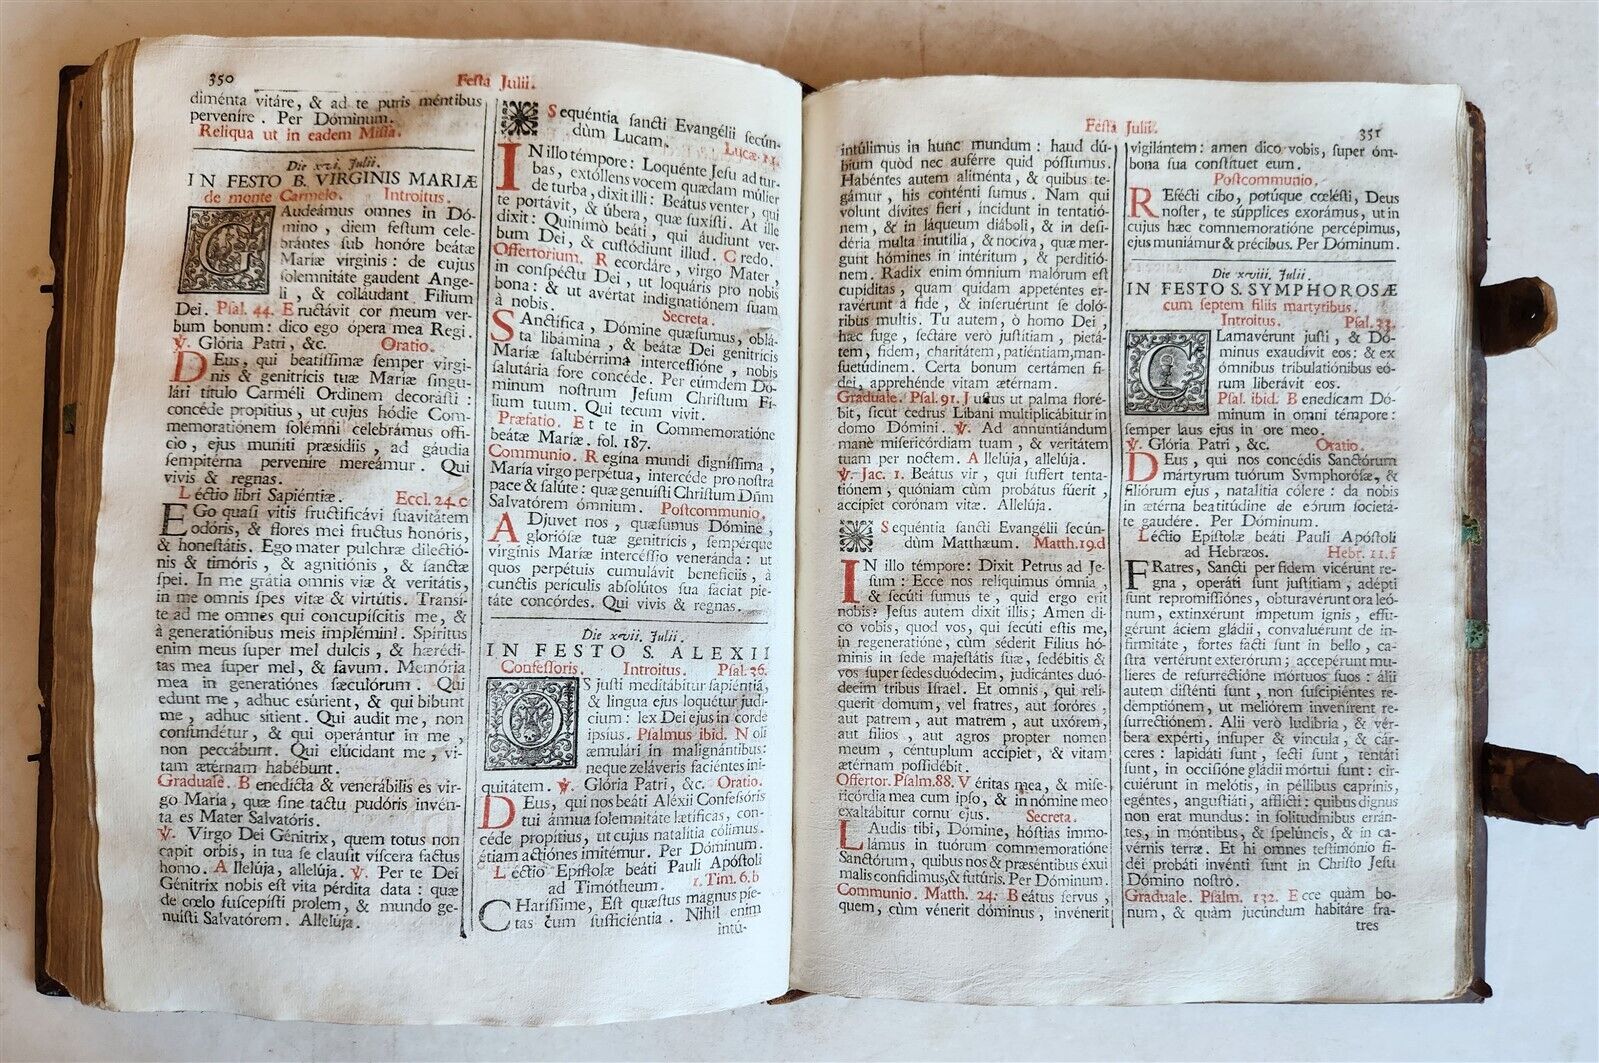 350
Festa Julii.
diménta vitáre, & ad te puris méntibus
perveníre. Per Dóminum.
Reliqua ut in eadem Missa.
Die xvi. Julii.
IN FESTO B. VIRGINIS MARIÆ
de monte Carmelo. Introitus.
GAudeámus omnes in Dó-
mino, diem festum cele-
brántes sub honóre beátæ
Maríæ virginis: de cujus
solemnitáte gaudent Ange-
li, & colláudant Filium
Dei. Psal. 44. Eructávit cor meum ver-
bum bonum: dico ego ópera mea Regi.
℣. Glória Patri, &c. Oratio.
DEus, qui beatíssimæ semper vírgi-
nis & genitrícis tuæ Maríæ singu-
lári título Carméli Ordinem decorásti:
concéde propítius, ut cujus hódie Com-
memoratiónem solémni celebrámus offi-
cio, ejus muníti præsídiis, ad gáudia
sempitérna perveníre mereámur. Qui
vivis & regnas.
Léctio libri Sapiéntiæ. Eccl. 24. c
EGo quasi vitis fructificávi suavitátem
odóris, & flores mei fructus honóris,
& honestátis. Ego mater pulchræ dilectió-
nis & timóris, & agnitiónis, & sanctæ
spei. In me grátia omnis viæ & veritátis,
in me omnis spes vitæ & virtútis. Transí-
te ad me omnes qui concupíscitis me, &
à generatiónibus meis implémini. Spíritus
enim meus super mel dulcis, & hærédi-
tas mea super mel, & favum. Memória
mea in generatiónes sæculórum. Qui
edunt me, adhuc esúrient, & qui bibunt
me, adhuc sítient. Qui audit me, non
confundétur, & qui operántur in me,
non peccábunt. Qui elúcidant me, vi-
tam ætérnam habébunt.
Graduale. Benedícta & venerábilis es vir-
go María, quæ sine tactu pudóris invén-
ta es Mater Salvatóris.
℣. Virgo Dei Génitrix, quem totus non
capit orbis, in tua se clausit víscera factus
homo. Allelúja, allelúja. ℣. Per te Dei
Génitrix nobis est vita pérdita data: quæ
de cœlo suscepísti prolem, & mundo ge-
nuísti Salvatórem. Allelúja.
Sequéntia sancti Evangélii secún-
dùm Lucam. Lucæ 11.
IN illo témpore: Loquénte Jesu ad tur-
bas, extóllens vocem quædam múlier
de turba, dixit illi: Beátus venter, qui
te portávit, & úbera, quæ suxísti. At ille
dixit: Quinímò beáti, qui áudiunt ver-
bum Dei, & custódiunt illud. Credo.
Offertorium. Recordáre, virgo Mater,
in conspéctu Dei, ut loquáris pro nobis
bona: & ut avértat indignatiónem suam
à nobis. Secreta.
SAnctífica, Dómine quæsumus, oblá-
ta libámina, & beátæ Dei genitrícis
Maríæ salubérrima intercessióne, nobis
salutária fore concéde. Per eúmdem Dó-
minum nostrum Jesum Christum Fí-
lium tuum. Qui tecum vivit.
Præfatio. Et te in Commemoratióne
beátæ Maríæ. fol. 187.
Communio. Regína mundi digníssima,
María virgo perpétua, intercéde pro nostra
pace & salúte: quæ genuísti Christum Dñm
Salvatórem ómnium. Postcommunio.
ADjuvet nos, quæsumus Dómine,
gloriósæ tuæ genitrícis, sempérque
vírginis Maríæ intercéssio veneránda: ut
quos perpétuis cumulávit benefíciis, à
cunctis perículis absolútos sua fáciat pie-
táte concórdes. Qui vivis & regnas.
Die xvii. Julii.
IN FESTO S. ALEXII
Confessoris. Introitus. Psal. 36.
OS justi meditábitur sapiéntiá,
& lingua ejus loquétur judí-
cium: lex Dei ejus in corde
ipsius. Psalmus ibid. Noli
æmulári in malignántibus:
neque zeláveris faciéntes ini-
quitátem. ℣. Glória Patri, &c. Oratio.
DEus, qui nos beáti Aléxii Confessóris
tui ánnua solemnitáte lætíficas, con-
céde propítius, ut cujus natalítia cólimus,
étiam actiónes imitémur. Per Dóminum.
Léctio Epístolæ beáti Pauli Apóstoli
ad Timótheum. 1. Tim. 6. b
CHaríssime, Est quæstus magnus píe-
tas cum sufficiéntia. Nihil enim
intú-
Festa Julii.
351
intúlimus in hunc mundum: haud dú-
bium quòd nec auférre quid póssumus.
Habéntes autem aliménta, & quibus te-
gámur, his conténti sumus. Nam qui
volunt dívites fieri, íncidunt in tentatió-
nem, & in láqueum diáboli, & in desi-
déria multa inutília, & nocíva, quæ mer-
gunt hómines in intéritum, & perditió-
nem. Radix enim ómnium malórum est
cupíditas, quam quidam appeténtes er-
ravérunt à fide, & inseruérunt se doló-
ribus multis. Tu autem, ò homo Dei,
hæc fuge, sectáre verò justítiam, pietá-
tem, fidem, charitátem, patiéntiam, man-
suetúdinem. Certa bonum certámen fi-
dei, apprehénde vitam ætérnam.
Graduale. Psal. 91. Justus ut palma floré-
bit, sicut cedrus Líbani multiplicábitur in
domo Dómini. ℣. Ad annuntiándum
manè misericórdiam tuam, & veritátem
tuam per noctem. Allelúja, allelúja.
℣. Jac. 1. Beátus vir, qui suffert tenta-
tiónem, quóniam cùm probátus fúerit,
accípiet corónam vitæ. Allelúja.
Sequéntia sancti Evangélii secún-
dùm Matthæum. Matth. 19. d
IN illo témpore: Dixit Petrus ad Je-
sum: Ecce nos relíquimus ómnia,
& secúti sumus te, quid ergo erit
nobis? Jesus autem dixit illis; Amen di-
co vobis, quod vos, qui secúti estis me,
in regeneratióne, cùm séderit Fílius hó-
minis in sede majestátis suæ, sedébitis &
vos super sedes duódecim, judicántes duó-
decim tribus Israel. Et omnis, qui relí-
querit domum, vel fratres, aut soróres,
aut patrem, aut matrem, aut uxórem,
aut fílios, aut agros propter nomen
meum, céntuplum accípiet, & vitam
ætérnam possidébit.
Offertor. Psalm. 88. Véritas mea, & mise-
ricórdia mea cum ipso, & in nómine meo
exaltábitur cornu ejus. Secreta.
LAudis tibi, Dómine, hóstias immo-
lámus in tuórum commemoratióne
Sanctórum, quibus nos & præséntibus éxui
malis confídimus, & futúris. Per Dóminum.
Communio. Matth. 24. Beátus servus,
quem, cùm vénerit dóminus, invénerit
vigilántem: amen dico vobis, super óm-
bona sua constítuet eum.
Postcommunio.
REfécti cibo, potúque cœlésti, Deus
noster, te súpplices exorámus, ut in
cujus hæc commemoratióne percépimus,
ejus muniámur & précibus. Per Dóminum.
Die xviii. Julii.
IN FESTO S. SYMPHOROSÆ
cum septem filiis martyribus.
Introitus. Psal. 33.
CLamavérunt justi, & Dó-
minus exaudívit eos: & ex
ómnibus tribulatiónibus eó-
rum liberávit eos.
Psal. ibid. Benedicam Dó-
minum in omni témpore:
semper laus ejus in ore meo.
℣. Glória Patri, &c. Oratio.
DEus, qui nos concédis Sanctórum
mártyrum tuórum Symphorósæ, &
filiórum ejus, natalítia cólere: da nobis
in ætérna beatitúdine de eórum societá-
te gaudére. Per Dóminum.
Léctio Epístolæ beáti Pauli Apóstoli
ad Hebræos. Hebr. 11. f
FRatres, Sancti per fidem vicérunt re-
gna, operáti sunt justítiam, adépti
sunt repromissiónes, obturavérunt ora leó-
num, extinxérunt ímpetum ignis, effu-
gérunt áciem gládii, convaluérunt de in-
firmitáte, fortes facti sunt in bello, ca-
stra vertérunt exterórum; accepérunt mu-
líeres de resurrectióne mórtuos suos: álii
autem disténti sunt, non suscipiéntes re-
demptiónem, ut meliórem invenírent re-
surrectiónem. Alii verò ludíbria, & vér-
bera expérti, ínsuper & víncula, & cár-
ceres: lapidáti sunt, secti sunt, tentáti
sunt, in occisióne gládii mórtui sunt: cir-
cuiérunt in melótis, in péllibus caprínis,
egéntes, angustiáti, afflícti: quibus dignus
non erat mundus: in solitudínibus errán-
tes, in móntibus, & spelúncis, & in ca-
vérnis terræ. Et hi omnes testimónio fí-
dei probáti invénti sunt in Christo Jesu
Dómino nostrò.
Graduale. Psalm. 132. Ecce quàm bo-
num, & quàm jucúndum habitáre fra-
tres